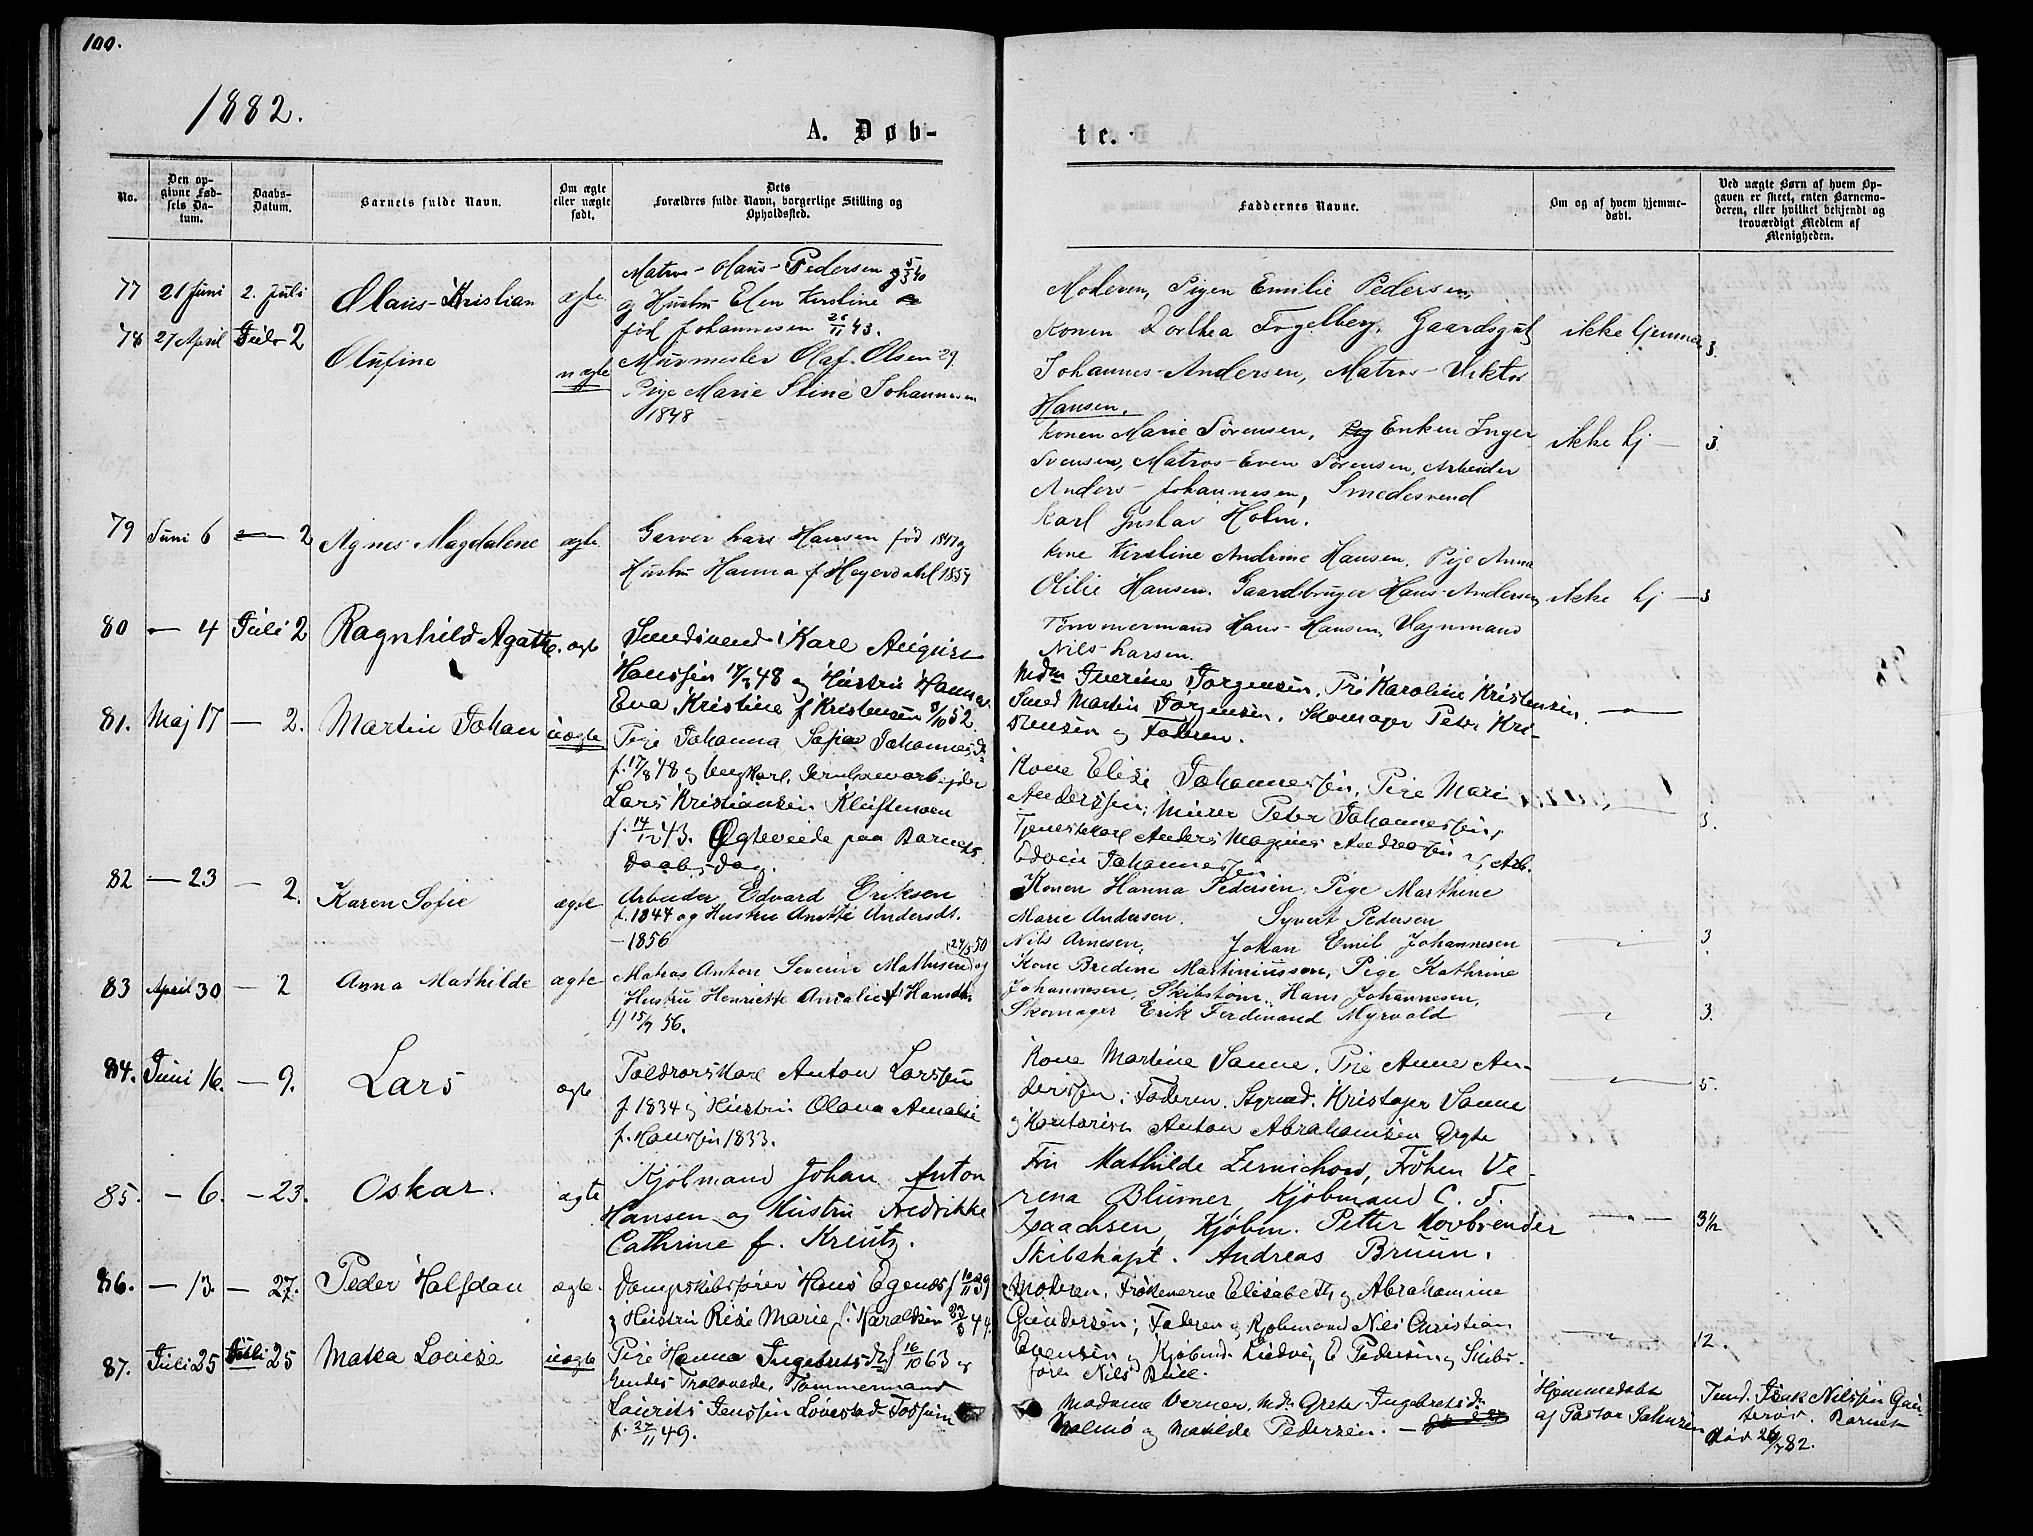 100.
1882.
A. Døb-
te.
No.
Den op-
givne Fød-
sels Da-
tum.
Daabs-
Datum.
Barnets fulde Navn.
Om ægte
eller uægte
født.
Dets
Forældres fulde Navn, borgerlige Stilling og
Opholdssted.
Faddernes Navne.
Om og af hvem hjemme-
døbt.
Ved uægte Børn af hvem Op-
gaven er skeet, enten Barnemo-
deren, eller hvilket bekjendt og
troværdigt Medlem af
Menigheden.
77 21 Juni 2. Juli Olaus Kristian ægte
Matros Olaus Pedersen
og Hustru Elen Kirstine
født Johannesen 43.
Moderen, Pigen Emilie Pedersen,
Konen Dorthea Fogelberg, Gaardsgut
Johannes Andersen, Matros Viktor
Hansen.
ikke hjemme 3.
78 27 April Juli 2 Olufine uægte
Murmester Olaf Olsen 29.
Pige Marie Stine Johannesen
1848
Konen Marie Sørensen, Enken Inger
Svensen, Matros Even Sørensen, Arbeider
Anders Johannesen, Smedesvend
Karl Gustav Holm.
ikke hj — 3
79 Juni 6 — 2 Agnes Magdalene ægte
Garver Lars Hansen født 1847 og
Hustru Hanna f. Heyerdahl 1857
Kone Kirstine Andrine Hansen, Pige Anna
Otilie Hansen. Gaardbruger Hans Andersen,
Tømmermand Hans Hansen, Vognmand
Nils Larsen.
ikke hj — 3
80 — 4 Juli 2 Ragnhild Agathe. ægte
Karl August
Hanssen 48 og Hustru Hanna
Eva Kristine f Kristensen 52.
Mdm Jørgensen, Karoline Kristensen
Smed Martin Jørgensen, Skomager Peter Kri-
stensen og Faderen.
81. Maj 17 — 2. Martin Johan uægte
Pige Johanna Sofie Johannesdt.
f. 17/8 48 og Ungkarl,
Lars Kristiansen
f. 14/12 43. Ægteviede paa Barnets
Daabsdag.
Kone Elise Johannessen, Pige Mari
Anderssen, Murer Peter Johannessen,
Tjenestekarl Anders Magnus Andreassen og Arb.
Edvin Johannessen
3.
82 — 23 — 2. Karen Sofie ægte
Arbeider Edvard Eriksen
f. 1844 og Hustru Anette Andersdt.
— 1856
Konen Hanna Pedersen, Pige Marthine
Marie Andersen. Syvert Pedersen
Nils Arnesen, Johan Emil Johannesen
3
83 April 30 — 2 Anna Mathilde ægte
Matros Anton Severin Mathisen (24/5 50) og
Hustru Henriette Amalie f Hansdtr
f) 15/7 56.
Kone Bredine Martiniussen, Pige Kathrine
Johannesen, Skibstøm. Hans Johannesen,
Skomager Erik Ferdinand Myrvold
3.
84. Juni 16. — 9. Lars ægte
Toldrorskarl Anton Larssen
f 1834 og Hustru Olava Amalie
f. Hanssen 1833.
Kone Martine Sanne. Pige Anne An-
derssen; Faderen, Styrmd. Kristofer Sanne
og Kontorist Anton Abrahamsen
5.
85. — 6. — 23. Oskar. ægte
Kjøbmand Johan Anton
Hansen og Hustru Fredrikke
Cathrine f. Kreutz.
Fru Mathilde Zernichow, Frøken Ve-
rena Blumer, Kjøbmand C. F.
Isaachsen, Kjøbm. Petter Hovbrender
Skibskapt. Andreas Bruun.
3½
86. — 13. — 27. Peder Halfdan ægte.
Dampskibsfører Hans Egenæs f 10/11 39
og Hustru Rise Marie f. Haraldsen 23/8 44.
Moderen, Frøknerne Elisabeth og Abrahamine
Gundersen; Faderen og Kjøbmand Nils Christian
Evensen og Kjøbmd. Ludvig E Pedersen og Skibs-
fører Nils
12.
87. Juli 25 Juli 25 Maka Lovise uægte
Pige Hanna Ingebretsdt f 16/10 63 og
hendes Trolovede, Tømmermand
Laurits Jenssen Lövestad Fossum
f. 27/11 49.
Madame Verner, Md. Grete Ingebretsdt
Malmö og Matilde Pedersen. —
Hjemmedøbt
af Pastor Johnsen
Isak Nilssen
Barnet
død 26/7 82.